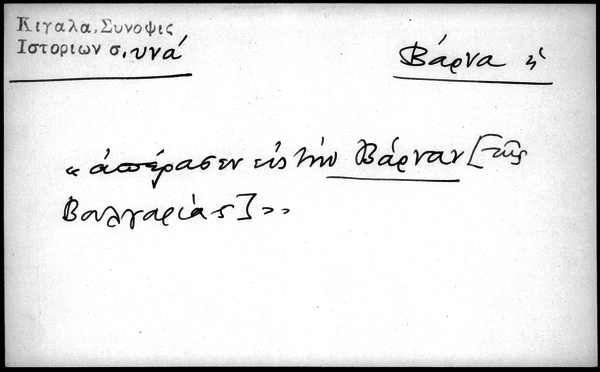 Κιγαλα, Συνοψις
Ιστοριων σ. υνά
Βάρνα ἡ
« ἀπέρασεν εἰς τὴν Βάρναν [τῆς
Βουλγαρίας] »